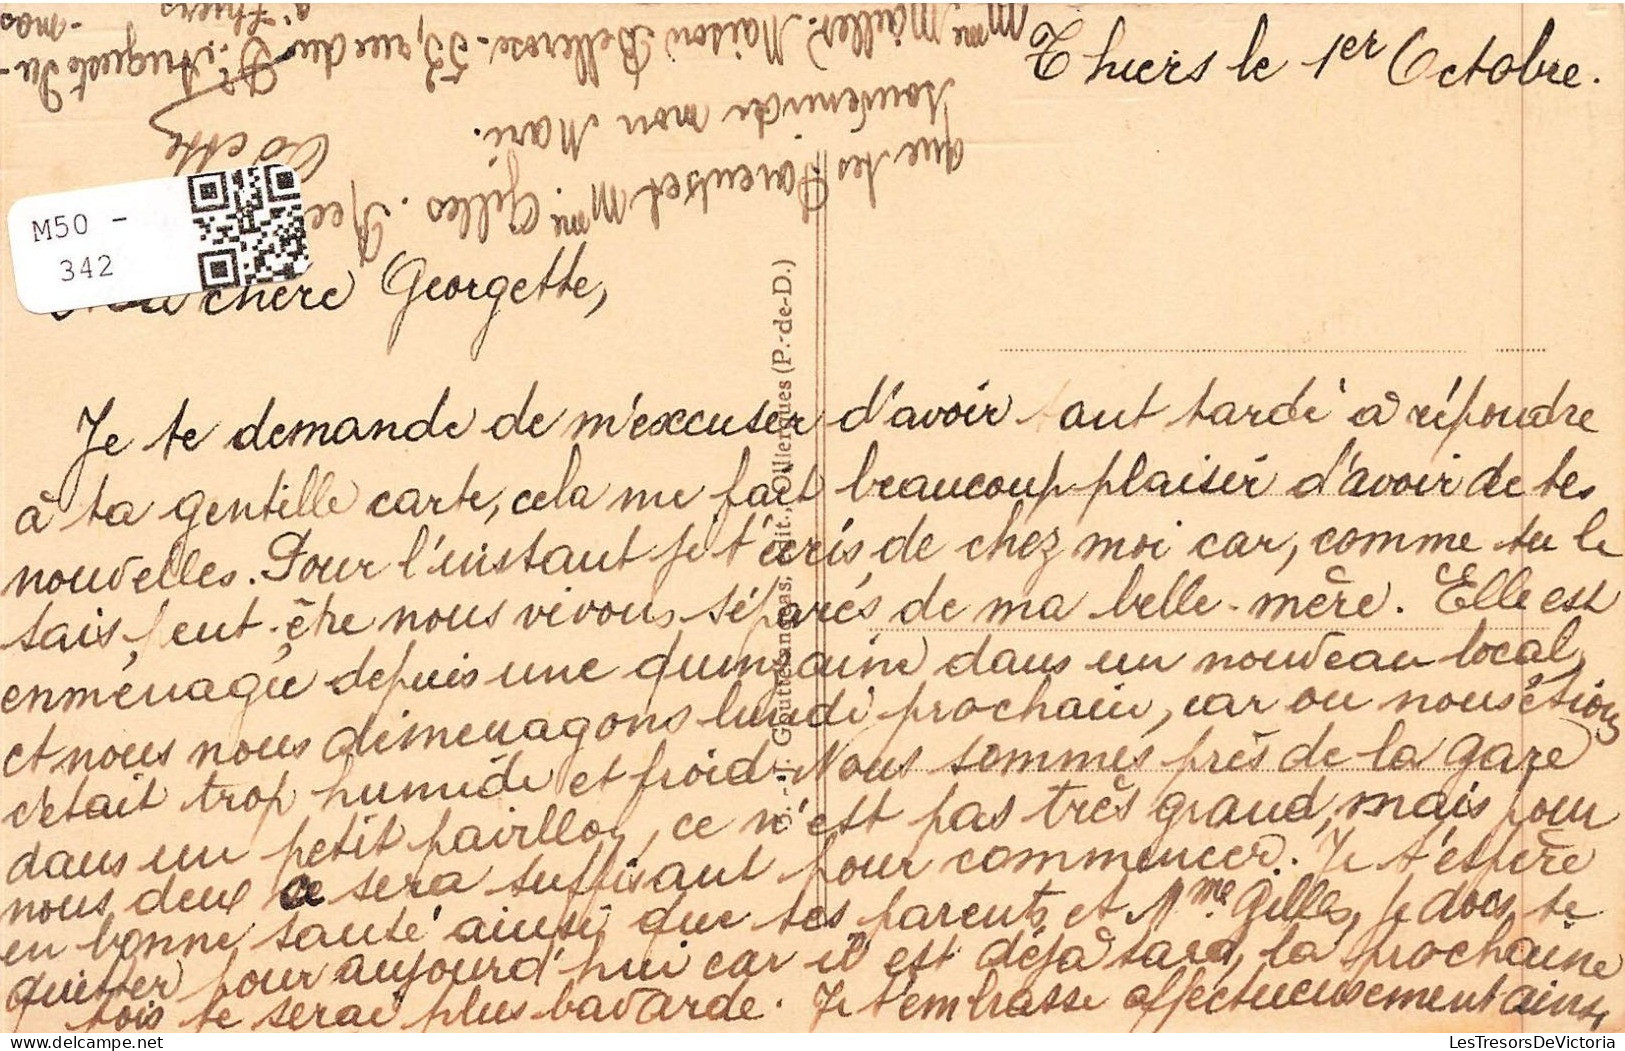 Thiers le 1er Octobre.
M50 -
342
chère Georgette,
Je te demande de m'excuser d'avoir tant tardé à répondre
à ta gentille carte, cela me fait beaucoup plaisir d'avoir de tes
nouvelles. Pour l'instant je t'écris de chez moi car, comme tu le
sais, peut-être nous vivons séparés de ma belle-mère. Elle est
enménagée depuis une quinzaine dans un nouveau local,
et nous nous déménagons lundi prochain, car ou nous étions
c'était trop humide et froid. Nous sommes près de la gare
dans un petit pavillon, ce n'est pas très grand, mais pour
nous deux ce sera suffisant pour commencer. Je t'espère
en bonne santé ainsi que tes parents et Mme Gilles, je dois te
quitter pour aujourd'hui car il est déjà tard, la prochaine
fois je serai plus bavarde. Je t'embrasse affectueusement ainsi
que tes Parents et Mme Gilles.
souvenir de mon Mari.
Odette
Mme Maillet. Maison Bellerose. 53, rue du Dr.
à Thiers
G. Gouttefangeas, édit., Olliergues (P.-de-D.)
LesTresorsDeVictoria.com